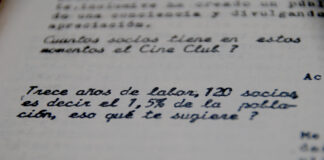 de una conciencia y divulgando
apreciación.
Cuantos socios tiene en estos
momentos el Cine Club ?
Ac
Trece años de labor, 120 socios
es decir el 1,5% de la pobla-
ción, eso qué te sugiere ?
Me